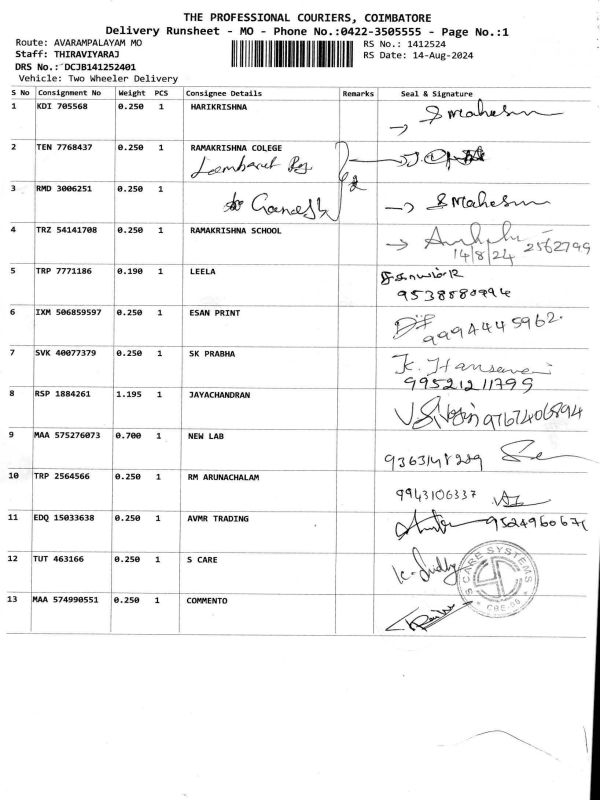 THE PROFESSIONAL COURIERS, COIMBATORE
Delivery Runsheet - MO - Phone No.:0422-3505555 - Page No.:1
Route: AVARAMPALAYAM MO RS No.: 1412524
Staff: THIRAVIYARAJ RS Date: 14-Aug-2024
DRS No.: DCJB141252401
Vehicle: Two Wheeler Delivery
S No Consignment No Weight PCS Consignee Details Remarks Seal & Signature
1 KDI 705568 0.250 1 HARIKRISHNA S Mahesh
2 TEN 7768437 0.250 1 RAMAKRISHNA COLEGE
3 RMD 3006251 0.250 1 Ganesh S Mahesh
4 TRZ 54141708 0.250 1 RAMAKRISHNA SCHOOL 2562799
14/8/24
5 TRP 7771186 0.190 1 LEELA
9538880794
6 IXM 506859597 0.250 1 ESAN PRINT 9994445962.
7 SVK 40077379 0.250 1 SK PRABHA K.
99521211799
8 RSP 1884261 1.195 1 JAYACHANDRAN
9 MAA 575276073 0.700 1 NEW LAB
10 TRP 2564566 0.250 1 RM ARUNACHALAM 9943106337
11 EDQ 15033638 0.250 1 AVMR TRADING
12 TUT 463166 0.250 1 S CARE S CARE SYSTEMS
13 MAA 574990551 0.250 1 COMMENTO